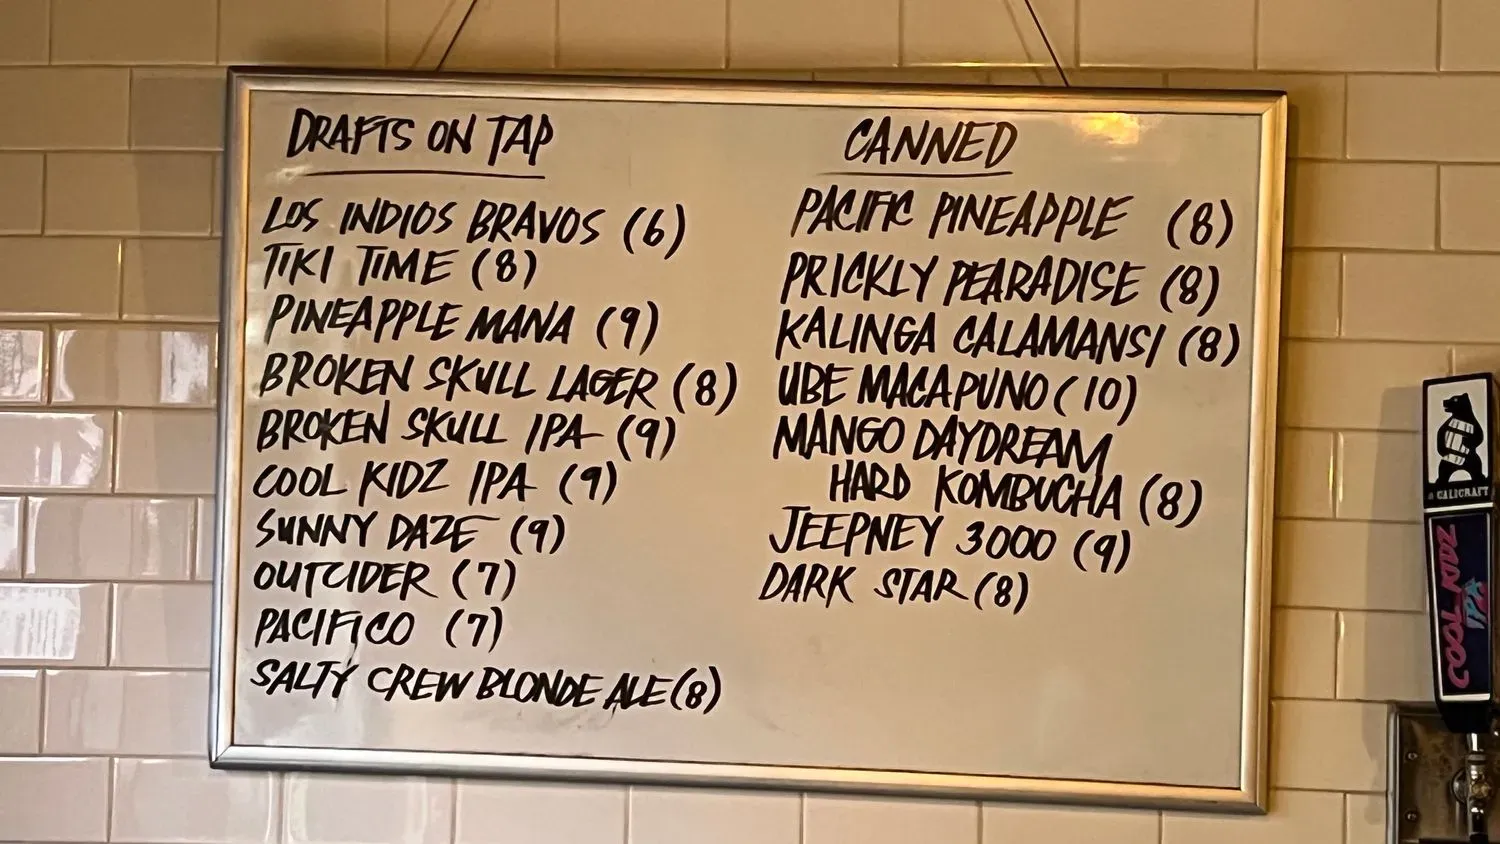 DRAFTS ON TAP
LOS INDIOS BRAVOS (6)
TIKI TIME (8)
PINEAPPLE MANA (9)
BROKEN SKULL LAGER (8)
BROKEN SKULL IPA (9)
COOL KIDZ IPA (9)
SUNNY DAZE (9)
OUTCIDER (7)
PACIFICO (7)
SALTY CREW BLONDE ALE (8)
CANNED
PACIFIC PINEAPPLE (8)
PRICKLY PEARADISE (8)
KALINGA CALAMANSI (8)
UBE MACAPUNO (10)
MANGO DAYDREAM
HARD KOMBUCHA (8)
JEEPNEY 3000 (9)
DARK STAR (8)
CALICRAFT
COOL KIDZ
IPA